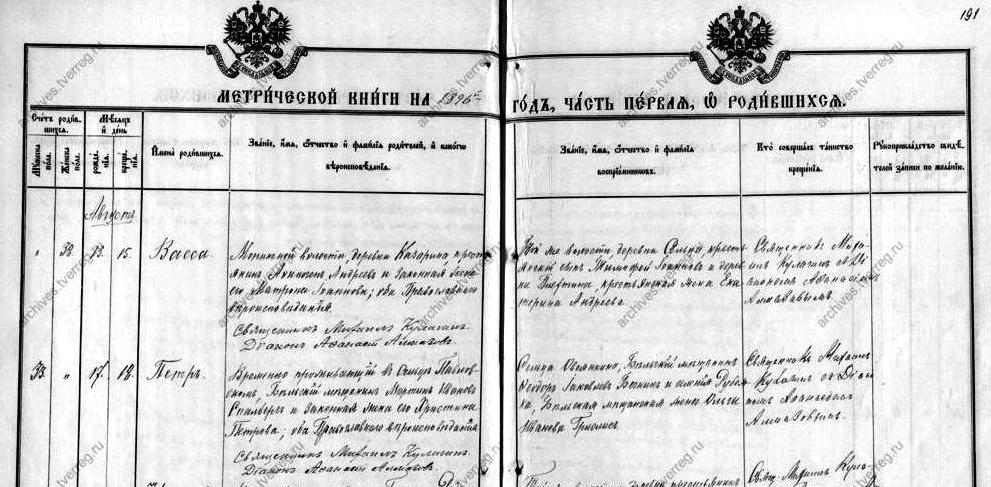 191
МЕТРИЧЕСКОЙ КНИГИ НА 1896й ГОДЪ, ЧАСТЬ ПЕРВАЯ, Ѡ РОДИВШИХСЯ.
Счетъ родив-
шихся.
Мужеска пола.
Женска пола.
Мѣсяцъ
и день
рожде-
нія.
креще-
нія.
Имена родившихся.
Званіе, имя, отчество и фамилія родителей, и какого
вѣроисповѣданія.
Званіе, имя, отчество и фамилія
воспріемниковъ.
Кто совершалъ таинство
крещенія.
Рукоприкладство свидѣ-
телей записи по желанію.
Августъ
" 32. 13. 15. Васса.
волости, деревни Качарина крест
Андреевъ и законная жена
его Матрона Іоаннова; оба Православнаго
вѣроисповѣданія.
Священникъ Михаилъ Кулагинъ.
Діаконъ Афанасій Алмазовъ.
Той же волости, деревни Сельца кресть
янскій сынъ Тимофей Іоанновъ и дерев
ни крестьянская жена Ека
терина Андреева.
Священникъ Миха-
илъ Кулагинъ съ Ді
акономъ Афанасіемъ
Алмазовымъ.
33. " 17. 18. Петръ.
Временно проживающій въ Сельцѣ Павлов
скомъ, Бѣльскій мѣщанинъ Мартинъ Ивановъ
и законная жена его Христина
Петрова; оба Православнаго вѣроисповѣданія
Священникъ Михаилъ Кулагинъ.
Діаконъ Афанасій Алмазовъ.
Сельца Бѣльскій мѣщанинъ
Ѳеодоръ Іаковлевъ и имѣнія Дубов
ка, Бѣльская мѣщанская жена Ольга
Иванова
Священникъ Михаилъ
Кулагинъ съ Діако
номъ Афанасіемъ
Алмазовымъ.
Свящ. Михаилъ Кула-
archives.tverreg.ru